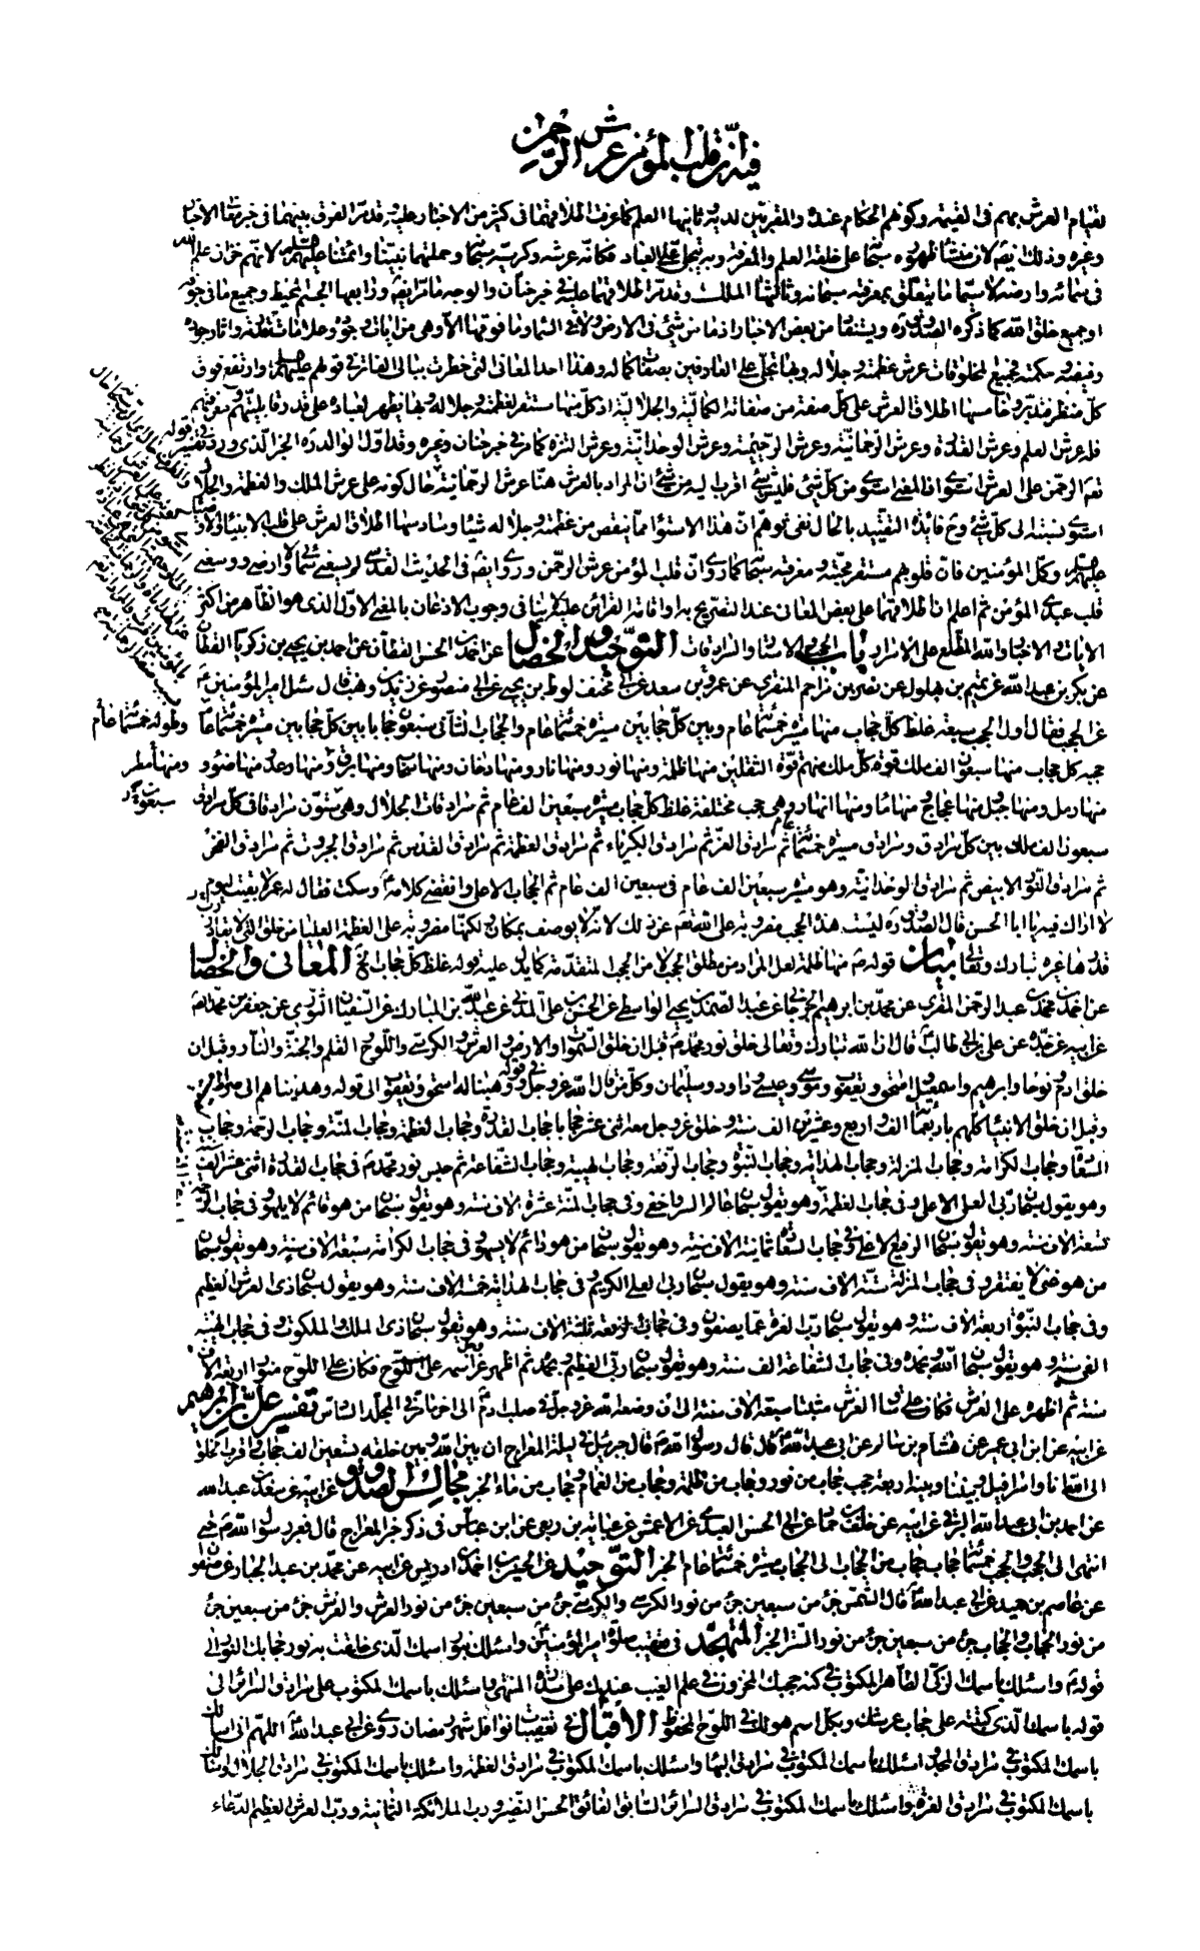 فيه انّ قلب المؤمن عرش الرحمن
لقيام العرش بهم فى القيمة وكونهم الحكام عنده والمقربين لديه وثانيها العلم كما عرفت اطلاقهما فى كثير من الاخبار عليه وقد مرّ الفرق بينهما فى خبر
وغيره وذلك ايضا لان منشأ ظهوره سبحانه على خلقه العلم والمعرفة وبه تجلى على العباد فكأنه عرشه وكرسيه سبحانه وحملتهما نبينا وائمتنا عليهم السلام لانهم خزان علم الله
فى سمائه وارضه لا سيما ما يتعلق بمعرفته سبحانه وثالثها الملك وقد مرّ اطلاقهما عليه فى خبر حنان والوجه ما مرّ ايضا ورابعها الجسم المحيط وجميع ما فى جوفه
او جميع خلق الله كما ذكره الصدوق ره ويستفاد من بعض الاخبار اذ ما من شئ فى الارض ولا فى السماء وما فوقها الا وهى من ايات وجوده وعلامات قدرته واثار جوده
وفيضه وحكمته فجميع المخلوقات عرش عظمته وجلاله وبها تجلى على العارفين بصفات كماله وهذا احد المعانى التى خطرت ببالى الفاتر فى قولهم عليهم السلام وارتفع فوق
كلّ منظر فتدبّر وخامسها اطلاق العرش على كل صفة من صفاته الكمالية والجلالية اذ كلّ منها مستقر لعظمته وجلاله وبها يظهر لعباده على قدر قابليتهم ومعرفتهم
فله عرش العلم وعرش القدرة وعرش الرحمانية وعرش الرحيمية وعرش الوحدانية وعرش التنزه كما مرّ فى خبر حنان وغيره وقد اوّل الوالد ره الخبر الّذى ورد فى تفسير قوله
تعالى الرحمن على العرش استوى ان المعنى استوى من كل شئ فليس شئ اقرب اليه من شئ ان المراد بالعرش هنا عرش الرحمانية حال كونه على عرش الملك والعظمة والجلال
استوى نسبته الى كل شئ وح فائدة التقييد بالحال نفى توهم ان هذا الاستواء مما ينقص من عظمته وجلاله شيئا وسادسها اطلاق العرش على قلب الانبياء والاوصياء
عليهم السلام وكمّل المؤمنين فان قلوبهم مستقر محبته ومعرفته سبحانه كما روى ان قلب المؤمن عرش الرحمن وروى ايضا فى الحديث القدسى لم يسعنى سمائى ولا ارضى ووسعنى
قلب عبدى المؤمن ثم اعلم ان اطلاقهما على بعض المعانى عند التصريح به او اقامة القرائن عليه لا ينافى وجوب الاذعان بالمعنى الاوّل الذى هو الظاهر من اكثر
الايات والاخبار والله المطلع على الاسرار باب الحجب والاستار والسرادقات التوحيد والخصال عن احمد بن الحسن القطان عن احمد بن يحيى بن زكريا القطان
عن بكر بن عبد الله عن تميم بن بهلول عن نصر بن مزاحم المنقرى عن عمرو بن سعد عن ابى مخنف لوط بن يحيى عن ابى منصور عن زيد بن وهب قال سئل امير المؤمنين ع
عن الحجب فقال اول الحجب سبعة غلظ كلّ حجاب منها مسيرة خمسمائة عام وبين كلّ حجابين مسيرة خمسمائة عام والحجاب الثانى سبعون حجابا بين كلّ حجابين مسيرة خمسمائة عام وطوله خمسمائة عام
حجبة كل حجاب منها سبعون الف ملك قوة كل ملك منهم قوّة الثقلين منها ظلمة ومنها نور ومنها نار ومنها دخان ومنها سحاب ومنها برق ومنها رعد ومنها ضوء ومنها مطر
ومنها رمل ومنها جبل ومنها عجاج ومنها ماء ومنها انهار وهى حجب مختلفة غلظ كلّ حجاب مسيرة سبعين الف عام ثم سرادقات الجلال وهى ستّون سرادقا فى كلّ سرادق
سبعون الف ملك بين كلّ سرادق وسرادق مسيرة خمسمائة عام ثم سرادق العزّ ثم سرادق الكبرياء ثم سرادق العظمة ثم سرادق القدس ثم سرادق الجبروت ثم سرادق الفخر
ثم سرادق النور الابيض ثم سرادق الوحدانية وهو مسيرة سبعين الف عام فى سبعين الف عام ثم الحجاب الاعلى وانقضى كلامه ع وسكت فقال له عمر لا بقيت ليوم
لا اراك فيه يا ابا الحسن قال الصدوق ره ليست هذه الحجب مضروبة على الله تعالى عن ذلك لانه لا يوصف بمكان ولكنها مضروبة على العظمة العليا من خلقه التى لا يقادر
قدرها غيره تبارك وتعالى بيان قوله ع منها ظلمة لعل المراد من مطلق الحجب لا من الحجب المتقدمة كما يدل عليه قوله غلظ كل حجاب الخ المعانى والخصال
عن احمد بن محمد بن عبد الرحمن المقرى عن محمد بن ابرهيم الجرجانى عن عبد الصمد بن يحيى الواسطى عن الحسن بن على المدنى عن عبد الله بن المبارك عن السفيان الثورى عن جعفر بن محمد الصادق
عن ابيه عن جدّه عن على بن ابى طالب ع قال ان الله تبارك وتعالى خلق نور محمد ص قبل ان خلق السّموات والارض والعرش والكرسى واللوح والقلم والجنة والنار وقبل ان
خلق ادم ونوحا وابرهيم واسمعيل واسحق ويعقوب وموسى وعيسى وداود وسليمان وكلّ من قال الله عز وجل فى قوله ووهبنا له اسحق ويعقوب الى قوله وهديناهم الى صراط مستقيم
وقبل ان خلق الانبياء كلّهم باربعمائة الف واربع وعشرين الف سنة وخلق عز وجل معه اثنى عشر حجابا حجاب القدرة وحجاب العظمة وحجاب المنّة وحجاب الرحمة وحجاب
السعادة وحجاب الكرامة وحجاب المنزلة وحجاب الهداية وحجاب النبوّة وحجاب الرفعة وحجاب الهيبة وحجاب الشفاعة ثم حبس نور محمد ص فى حجاب القدرة اثنى عشر الف سنة
وهو يقول سبحان ربى العلى الاعلى وفى حجاب العظمة وهو يقول سبحان عالم السر واخفى وفى حجاب المنّة عشرة الاف سنة وهو يقول سبحان من هو قائم لا يلهو وفى حجاب الرحمة
تسعة الاف سنة وهو يقول سبحان الرفيع الاعلى وفى حجاب السعادة ثمانية الاف سنة وهو يقول سبحان من هو دائم لا يسهو وفى حجاب الكرامة سبعة الاف سنة وهو يقول سبحان
من هو غنى لا يفتقر وفى حجاب المنزلة ستّة الاف سنة وهو يقول سبحان ربى العلى الكريم وفى حجاب الهداية خمسة الاف سنة وهو يقول سبحان ذى العرش العظيم
وفى حجاب النبوّة اربعة الاف سنة وهو يقول سبحان ربّ العزة عما يصفون وفى حجاب الرفعة ثلثة الاف سنة وهو يقول سبحان ذى الملك والملكوت وفى حجاب الهيبة
الفى سنة وهو يقول سبحان الله وبحمده وفى حجاب الشفاعة الف سنة وهو يقول سبحان ربّى العظيم وبحمده ثم اظهر عز اسمه على اللوّح فكان على اللوّح منورا اربعة الاف
سنة ثم اظهره على العرش فكان على ساق العرش مثبتا سبعة الاف سنة الى ان وضعه الله عز وجل فى صلب ادم الى اخر ما مرّ فى المجلد السّادس تفسير على بن ابرهيم
عن ابيه عن ابن ابى عمير عن هشام بن سالم عن ابى عبد الله ع قال قال رسول الله ص قال جبرئيل فى ليلة المعراج ان بين الله وبين خلقه تسعين الف حجاب واقرب الخلق
الى الله انا واسرافيل وبيننا وبينه اربعة حجب حجاب من نور وحجاب من ظلمة وحجاب من الغمام وحجاب من ماء الخبر مجالس الصدوق عن ابيه عن سعد بن عبد الله
عن احمد بن ابى عبد الله البرقى عن ابيه عن خلف بن حماد عن ابى الحسن العبدى عن الاعمش عن عباية بن ربعى عن ابن عباس فى ذكر خبر المعراج قال فعبر رسول الله ص حتى
انتهى الى الحجب والحجب خمسمائة حجاب من الحجاب الى الحجاب مسيرة خمسمائة عام الخبر التوحيد عن الحسين بن احمد بن ادريس عن ابيه عن محمد بن عبد الجبار عن صفوان
عن عاصم بن حميد عن ابى عبد الله ع قال الشمس جزء من سبعين جزء من نور الكرسى والكرسى جزء من سبعين جزء من نور العرش والعرش جزء من سبعين جزء
من نور الحجاب والحجاب جزء من سبعين جزء من نور الستر الخبر المتهجّد فى تعقيب صلوة امير المؤمنين ع واسئلك بنور اسمك الّذى خلقت به نور حجابك النور الى
قوله ع واسئلك باسمك الزكى الطاهر المكتوب فى كنه حجبك المخزون فى علم الغيب عندك على سدرة المنتهى واسئلك باسمك المكتوب على سرادق السرائر الى
قوله باسمك الّذى كتبته على حجاب عرشك وبكل اسم هو لك فى اللوح المحفوظ الاقبال فى تعقيبات نوافل شهر رمضان روى عن ابى عبد الله ع اللهم انى اسئلك
باسمك المكتوب فى سرادق المجد واسئلك باسمك المكتوب فى سرادق البهاء واسئلك باسمك المكتوب فى سرادق العظمة واسئلك باسمك المكتوب فى سرادق الجلال واسئلك
باسمك المكتوب فى سرادق العزة واسئلك باسمك المكتوب فى سرادق السرائر السابق الفائق الحسن النضير ورب الملائكة الثمانية وربّ العرش العظيم الدّعاء